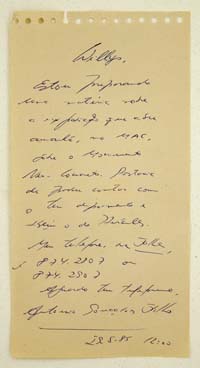 Willys,
Estou preparando
uma matéria sobre
a exposição que abre
amanhã, no MAC,
sobre o Movimento
Neo-Concreto. Gostaria
de poder contar com
o teu depoimento e
Meu telefone, na Folha,
é 874.2207 ou
874.2307
Aguardo teu telefonema,
Antonio Gonçalves Filho
29.5.85 12:00